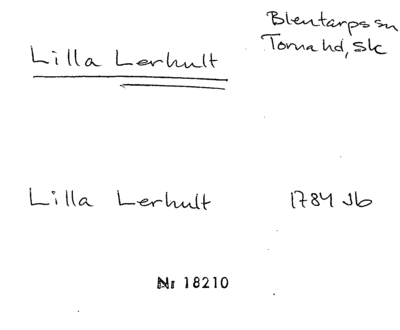 Blentarps sn
Torna hd, Sk
Lilla Lerhult
Lilla Lerhult 1784 Jb
Nr 18210